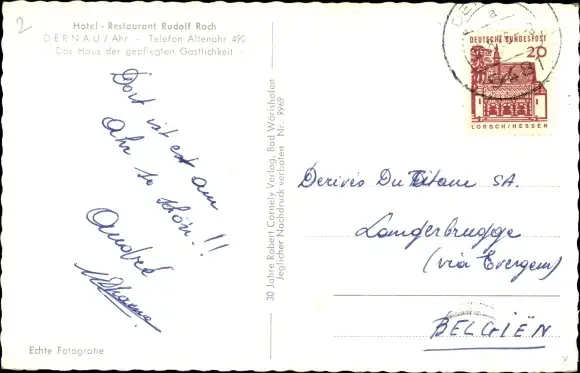 2
Hotel - Restaurant Rudolf Roch
DERNAU/Ahr - Telefon Altenahr 490
Das Haus der gepflegten Gastlichkeit -
Dort ist es am
Ahr so schön!!
André
Echte Fotografie
30 Jahre Robert Cornely Verlag, Bad Wörishofen
Jeglicher Nachdruck verboten Nr. 9969
DEUTSCHE BUNDESPOST
20
LORSCH/HESSEN
Derivés Du Titane SA.
Langerbrugge
(via Evergem)
BELGIËN